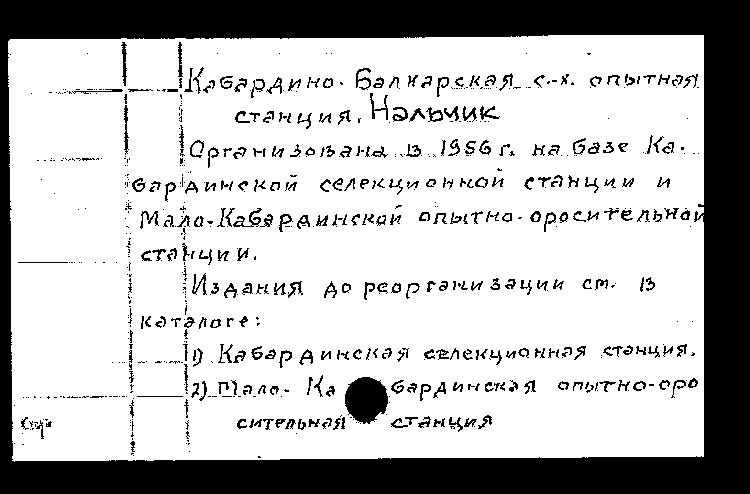 Кабардино-Балкарская с.-х. опытная
станция. Нальчик
Организована в 1956 г. на базе Ка-
бардинской селекционной станции и
Мало-Кабардинской опытно-оросительной
станции.
Издания до реорганизации см. в
каталоге:
1) Кабардинская селекционная станция.
2) Мало-Кабардинская опытно-оро
сительная станция